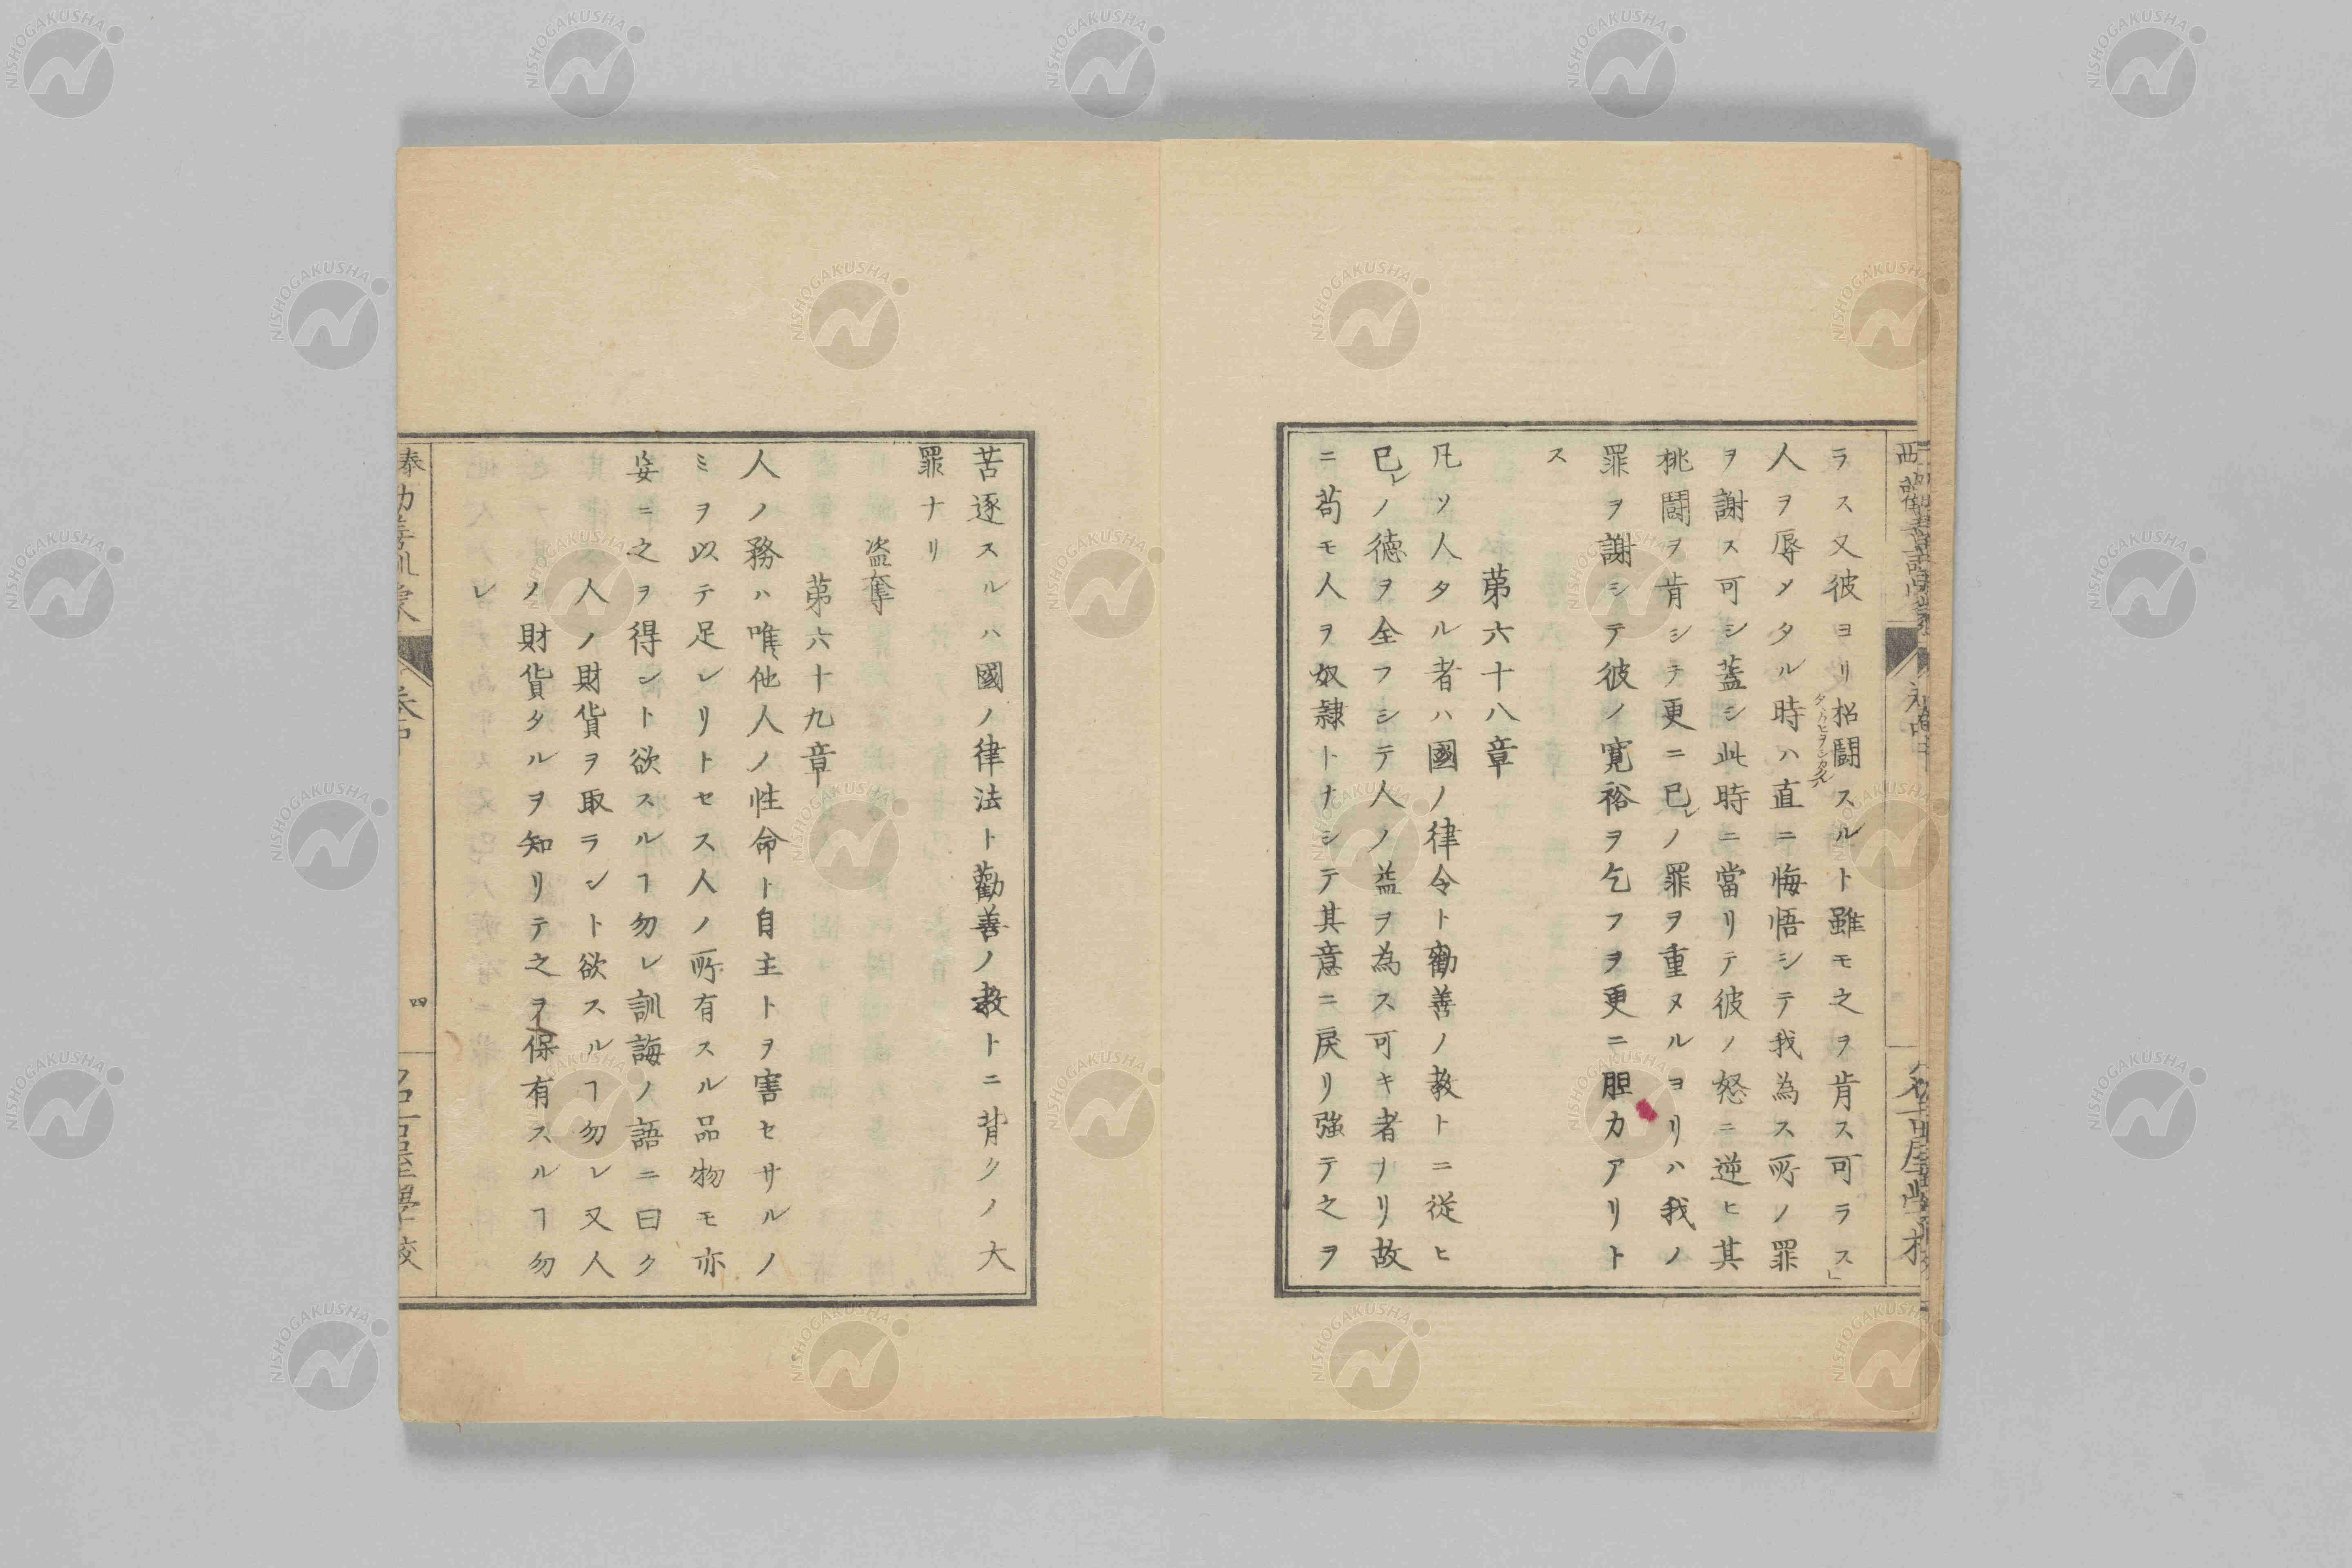 ラス又彼ヨリ招闘スルト雖モ之ヲ肯ス可ラス」
人ヲ辱メタル時ハ直ニ悔悟シテ我為ス所ノ罪
ヲ謝ス可シ蓋シ此時ニ當リテ彼ノ怒ニ逆ヒ其
桃闘ヲ肯シテ更ニ已レノ罪ヲ重ヌルヨリハ我ノ
罪ヲ謝シテ彼ノ寛裕ヲ乞フヲ更ニ胆力アリト
ス
第六十八章
凡ソ人タル者ハ國ノ律令ト勸善ノ教トニ従ヒ
已レノ徳ヲ全フシテ人ノ益ヲ為ス可キ者ナリ故
ニ苟モ人ヲ奴隷トナシテ其意ニ戻リ強テ之ヲ
苦逐スルハ國ノ律法ト勸善ノ教トニ背クノ大
罪ナリ
盗奪
第六十九章
人ノ務ハ唯他人ノ性命ト自主トヲ害セサルノ
ミヲ以テ足レリトセス人ノ所有スル品物モ亦
妄ニ之ヲ得ント欲スルヿ勿レ訓誨ノ語ニ曰ク
人ノ財貨ヲ取ラント欲スルヿ勿レ又人
ノ財貨タルヲ知リテ之ヲ保有スルヿ勿
レ
四
NISHOGAKUSHA